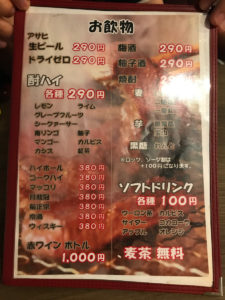 お飲物
アサヒ
生ビール 290円
ドライゼロ 290円
酎ハイ
各種 290円
レモン ライム
グレープフルーツ
シークァーサー
青リンゴ 柚子
マンゴー カルピス
カシス 紅茶
ハイボール 380円
コークハイ 380円
マッコリ 380円
380円
380円
380円
ウィスキー 380円
赤ワイン ボトル
1,000円
梅酒 290円
柚子酒 290円
焼酎 290円
麦
芋
黒糖 れんと
※ロック、ソーダ割は
+100円になります。
ソフトドリンク
各種 100円
ウーロン茶 カルピス
サイダー コカコーラ
アップル オレンジ
麦茶 無料